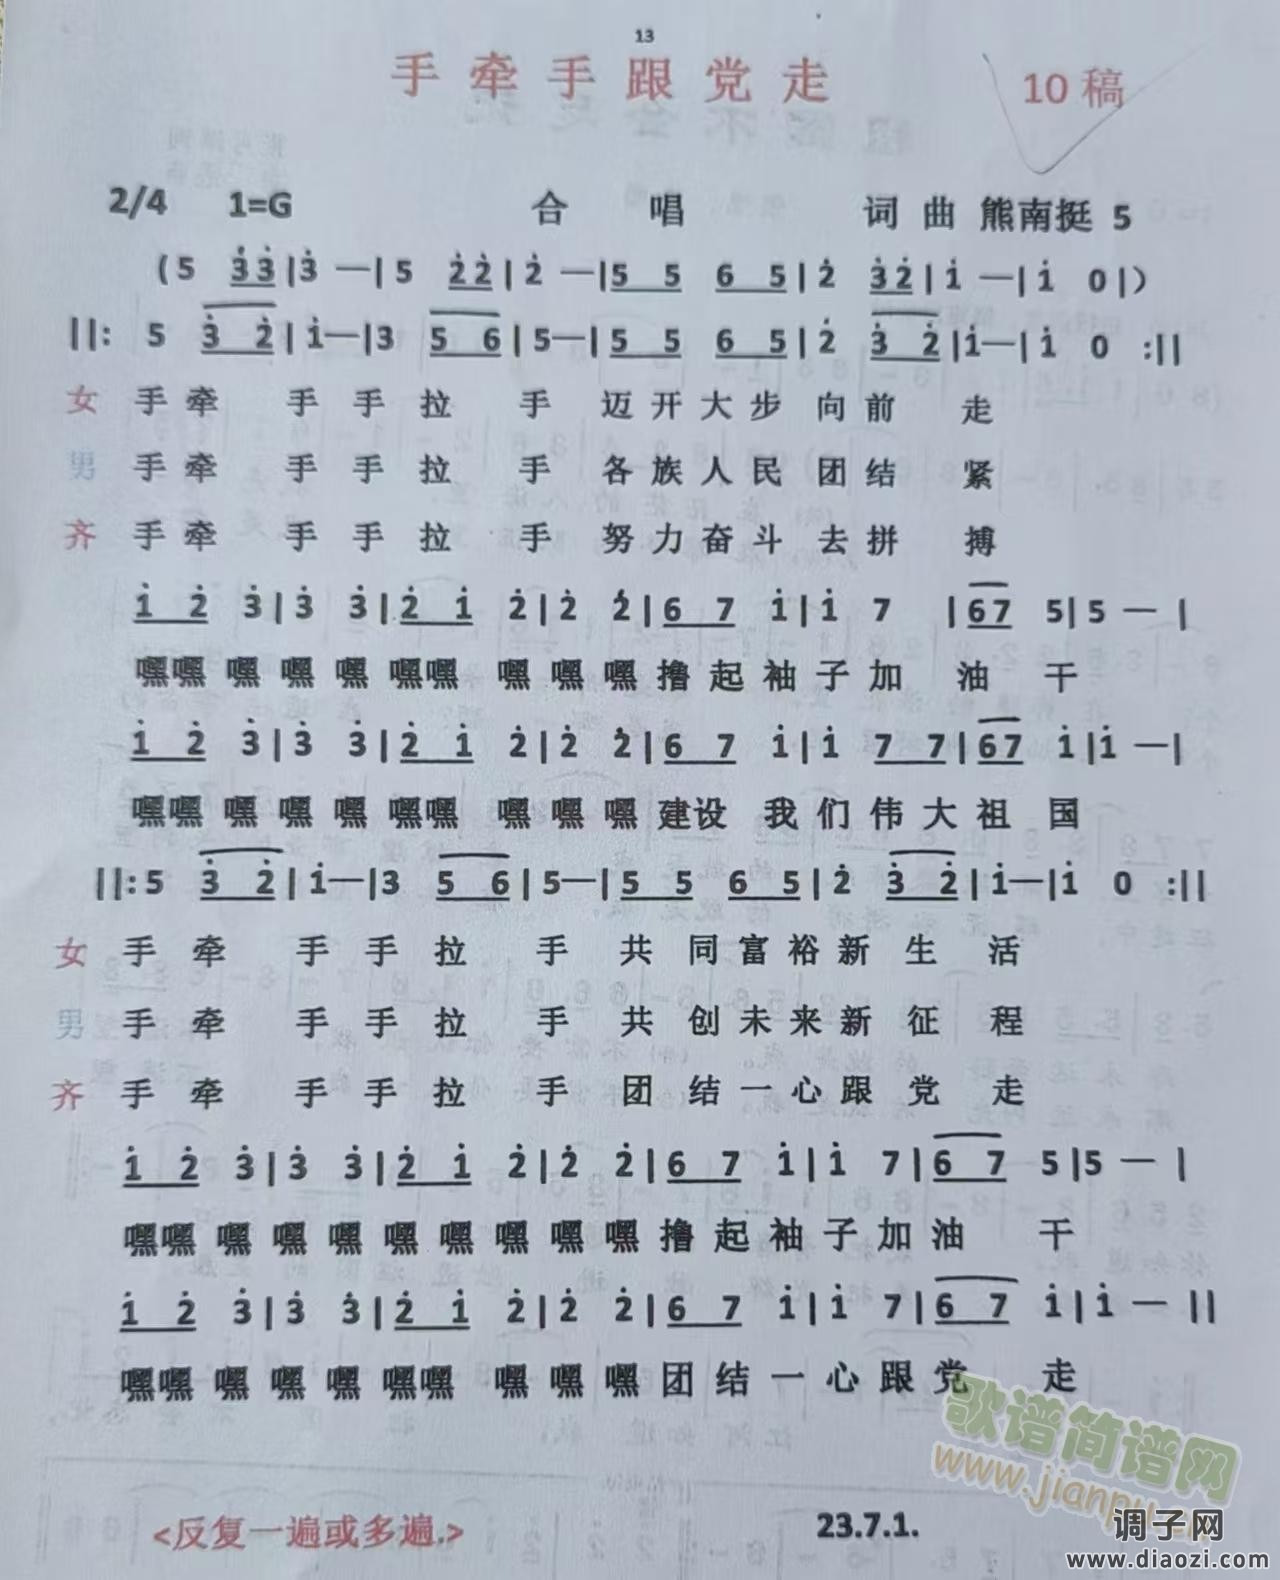 13
手牵手跟党走 10稿
2/4 1=G 合唱 词曲 熊南挺 5
(5 3̇3̇|3̇ —|5 2̇2̇|2̇ —|5 5 6 5|2̇ 3̇2̇|1̇ —|1̇ 0|)
||: 5 3̇ 2̇|1̇—|3 5 6|5—|5 5 6 5|2̇ 3̇ 2̇|1̇—|1̇ 0 :||
女 手牵 手手拉 手 迈开大步向前 走
男 手牵 手手拉 手 各族人民团结 紧
齐 手牵 手手拉 手 努力奋斗去拼 搏
1̇ 2̇ 3̇|3̇ 3̇|2̇ 1̇ 2̇|2̇ 2̇|6 7 1̇|1̇ 7 |67 5|5 —|
嘿嘿 嘿 嘿 嘿 嘿嘿 嘿 嘿嘿 撸起袖子加油 干
1̇ 2̇ 3̇|3̇ 3̇|2̇ 1̇ 2̇|2̇ 2̇|6 7 1̇|1̇ 7 7|67 1̇|1̇ —|
嘿嘿 嘿 嘿 嘿 嘿嘿 嘿 嘿嘿 建设 我们伟大祖 国
||: 5 3̇ 2̇|1̇—|3 5 6|5—|5 5 6 5|2̇ 3̇ 2̇|1̇—|1̇ 0 :||
女 手 牵 手手拉 手 共 同富裕新生 活
男 手 牵 手手拉 手 共 创未来新征 程
齐 手 牵 手手拉 手 团 结一心跟党 走
1̇ 2̇ 3̇|3̇ 3̇|2̇ 1̇ 2̇|2̇ 2̇|6 7 1̇|1̇ 7|6 7 5|5 —|
嘿嘿 嘿 嘿 嘿 嘿 嘿 嘿 嘿嘿 撸起袖子加油 干
1̇ 2̇ 3̇|3̇ 3̇|2̇ 1̇ 2̇|2̇ 2̇|6 7 1̇|1̇ 7|6 7 1̇|1̇ —||
嘿嘿 嘿 嘿 嘿 嘿嘿 嘿 嘿嘿 团结一心跟党 走
歌谱简谱网
www.jianpu
<反复一遍或多遍.> 23.7.1.
调子网
www.diaozi.com